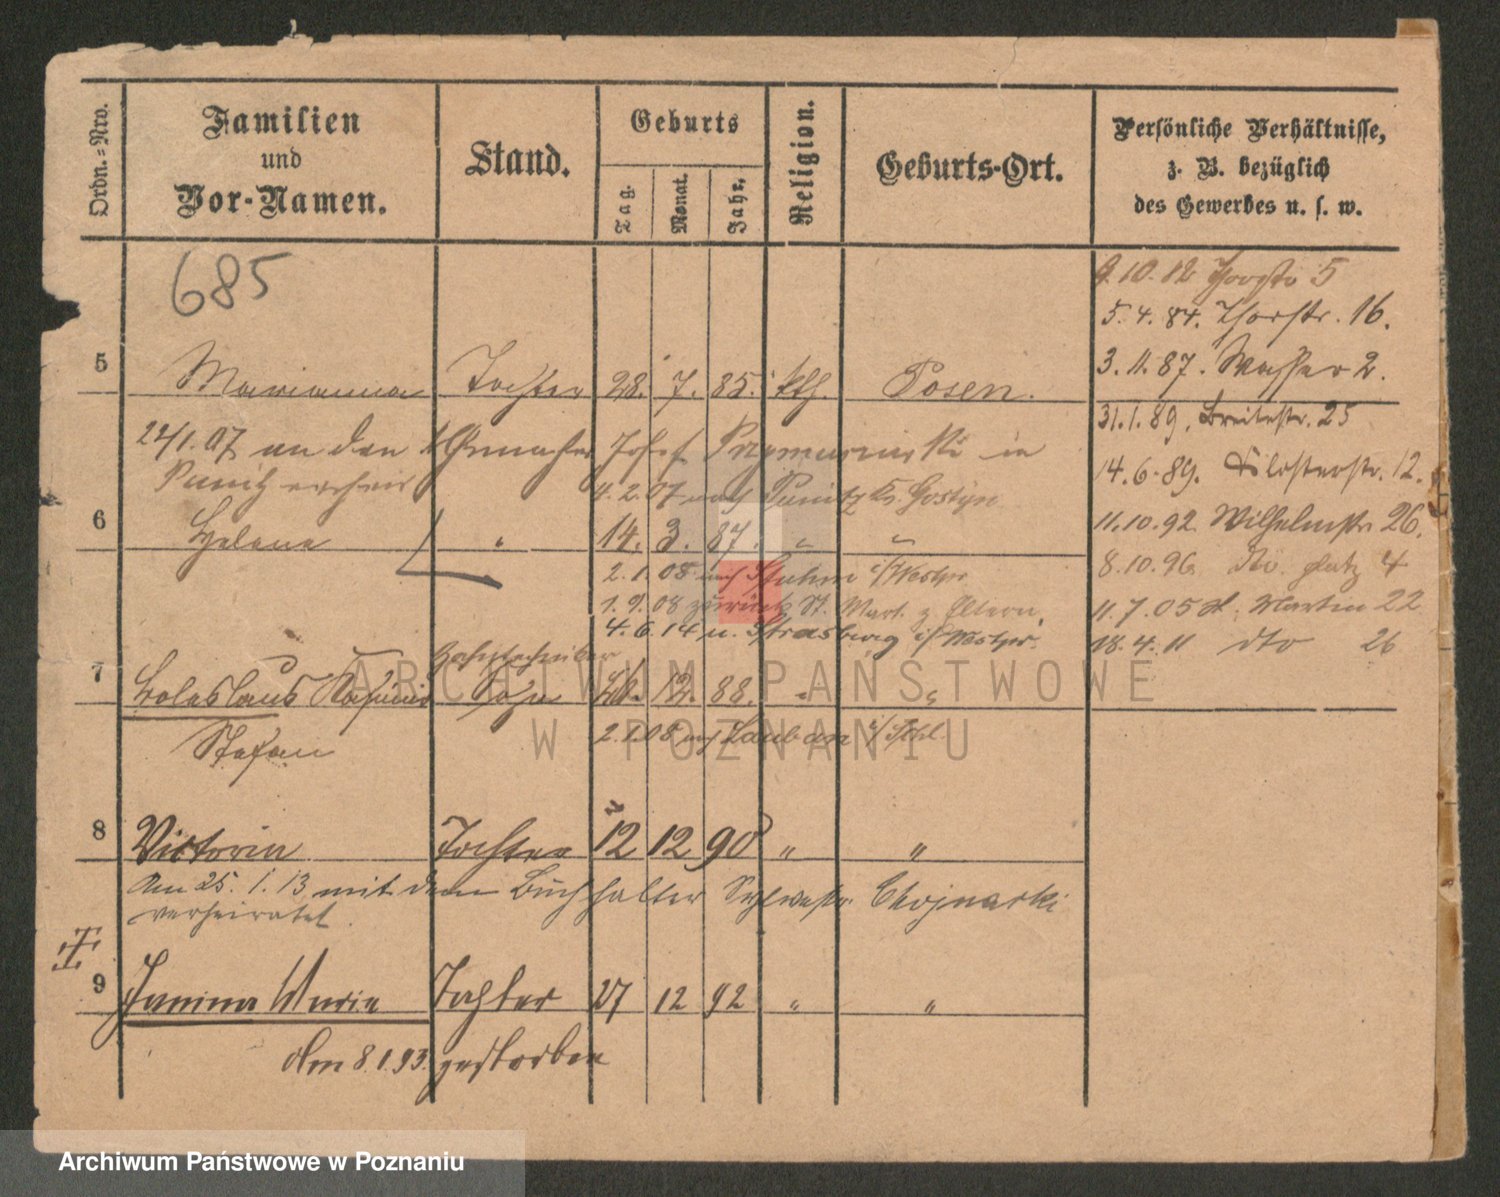 Ordn.=Nro.
Familien
und
Vor-Namen.
Stand.
Geburts
Tag.
Monat.
Jahr.
Religion.
Geburts-Ort.
Persönliche Verhältnisse,
z. B. bezüglich
des Gewerbes u. s. w.
685
9.10.82 Thorstr 5
5.4.84. Thorstr. 16.
3.11.87. Wasser 2.
5 Marianna Tochter 28. 7. 85. kth. Posen.
31.1.89, Breitestr. 25
22/1.07 an den Josef in
14.6.89. Klosterstr. 12.
Punitz
4.2.07 nach Punitz Kr. Gostyn
6 Helene " 14. 3. 87. " "
11.10.92 Wilhelmstr 26.
2.1.08 nach Stuhm i/Westpr.
8.10.96 do. platz 4
1.9.08 zurück St. Mart. z. Eltern,
11.7.05 St. Martin 22
4.6.14 n. Strasburg i/Westpr.
18.4.11 dto 26
Zahntechniker
7 Boleslaus Kasimir Sohn 12. 88. " "
Stefan
2.1.08 nach Lauban i/Schl.
8 Victoria Tochter 12 12 90 " "
Am 25.1.13 mit dem Buchhalter Sylvester Chojnacki
verheiratet.
9 Janina Maria Tochter 27 12 92 " "
Am 8.1.93. gestorben
ARCHIWUM PAŃSTWOWE
W POZNANIU
Archiwum Państwowe w Poznaniu